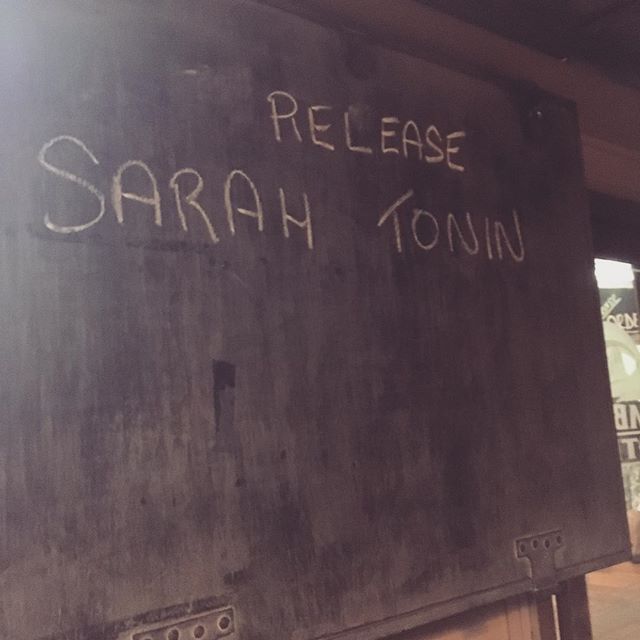 RELEASE
SARAH TONIN